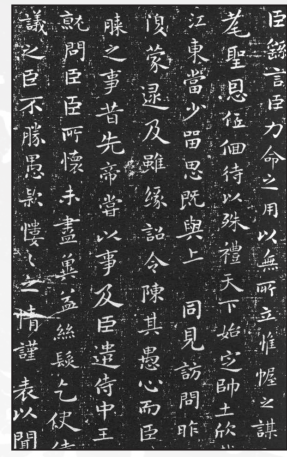 臣繇言臣力命之用以無所立惟幄之謀
耄聖恩伍佪待以殊禮天下始定帥土欣
江東當少畱思既與上 同見訪問昨
復蒙逮及雖緣詔令陳其愚心而臣
之事昔先帝嘗以事及臣遣侍中王
就問臣臣所懷未盡冀益絲髮乞使侍
議之臣不勝愚款慺々之情謹 表以聞